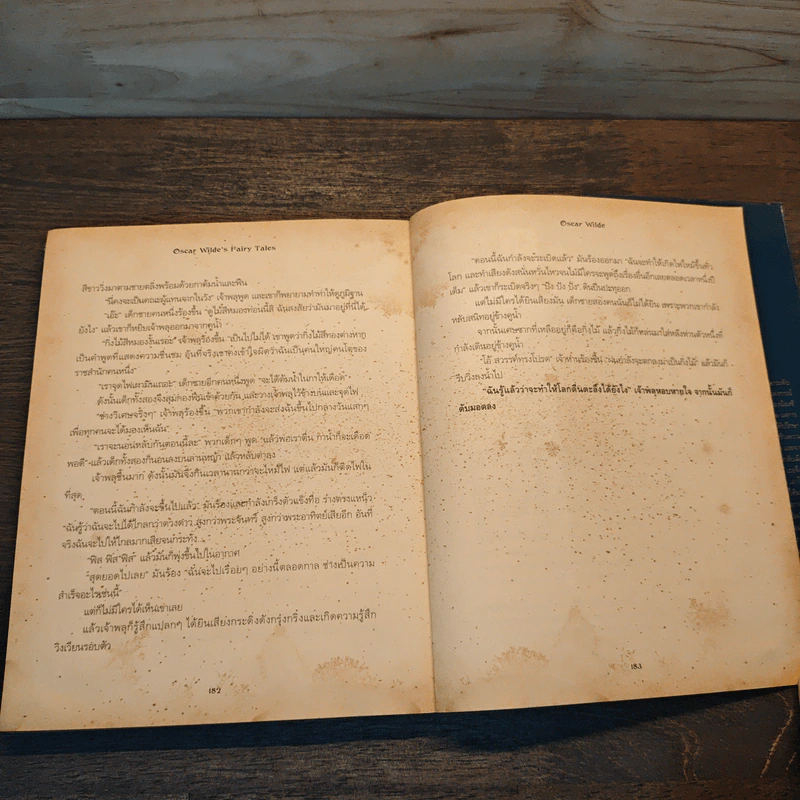 Oscar Wilde's Fairy Tales
สีขาววิ่งมาตามชายตลิ่งพร้อมด้วยกาต้มน้ำและฟืน
"นี่คงจะเป็นคณะผู้แทนจากในวัง" เจ้าพลุพูด และเขาก็พยายามทำท่าให้ดูภูมิฐาน
"เอ๊ะ" เด็กชายคนหนึ่งร้องขึ้น "ดูไม้สีหมอะท่อนนี้สิ ฉันสงสัยว่ามันมาอยู่ที่นี่ได้
ยังไง" แล้วเขาก็หยิบเจ้าพลุออกมาจากคูน้ำ
"กิ่งไม้สีหมองงั้นเรอะ" เจ้าพลุร้องขึ้น "เป็นไปไม่ได้ เขาพูดว่ากิ่งไม้สีทองต่างหาก
เป็นคำพูดที่แสดงความชื่นชม อันที่จริงเขาคงเข้าใจผิดว่าฉันเป็นคนใหญ่คนโตของ
ราชสำนักคนหนึ่ง"
"เราจุดไฟเผามันเถอะ" เด็กชายอีกคนหนึ่งพูด "จะได้ต้มน้ำในกาให้เดือด"
ดังนั้นเด็กทั้งสองจึงสุมกองฟืนเข้าด้วยกัน และวางเจ้าพลุไว้ข้างบนและจุดไฟ
"ช่างวิเศษจริงๆ" เจ้าพลุร้องขึ้น "พวกเขากำลังจะส่งฉันขึ้นไปกลางวันแสกๆ
เพื่อทุกคนจะได้มองเห็นฉัน"
"เราจะนอนหลับกันตอนนี้ละ" พวกเด็กๆ พูด "แล้วพอเราตื่น กาน้ำก็จะเดือด
พอดี" แล้วเด็กทั้งสองก็นอนลงบนลานหญ้า แล้วหลับตาลง
เจ้าพลุชื้นมาก ดังนั้นมันจึงกินเวลานานกว่าจะไหม้ไฟ แต่แล้วมันก็ติดไฟใน
ที่สุด
"ตอนนี้ฉันกำลังจะขึ้นไปแล้ว" มันร้องและกำลังเกร็งตัวแข็งทื่อ ร่างตรงแหน่ว
"ฉันรู้ว่าฉันจะไปได้ไกลกว่าดวงดาว สูงกว่าพระจันทร์ สูงกว่าพระอาทิตย์เสียอีก อันที่
จริงฉันจะไปให้ไกลมากเสียจนกระทั่ง..."
"ฟิส ฟิส ฟิส" แล้วมันก็พุ่งขึ้นไปในอากาศ
"สุดยอดไปเลย" มันร้อง "ฉันจะไปเรื่อยๆ อย่างนี้ตลอดกาล ช่างเป็นความ
สำเร็จอะไรเช่นนี้"
แต่ก็ไม่มีใครได้เห็นเขาเลย
แล้วเจ้าพลุก็รู้สึกแปลกๆ ได้ยินเสียงกระดิ่งดังกรุ๋งกริ๋งและเกิดความรู้สึก
วิงเวียนรอบตัว
182
Oscar Wilde
"ตอนนี้ฉันกำลังจะระเบิดแล้ว" มันร้องออกมา "ฉันจะทำให้เกิดไฟไหม้ขึ้นทั่ว
โลก และทำเสียงดังสนั่นหวั่นไหวจนไม่มีใครจะพูดถึงเรื่องอื่นอีกเลยตลอดเวลาหนึ่งปี
เต็ม" แล้วเขาก็ระเบิดจริงๆ "ปัง ปัง ปัง" ดินปืนปะทุออก
แต่ไม่มีใครได้ยินเสียงมัน เด็กชายสองคนนั้นก็ไม่ได้ยิน เพราะพวกเขากำลัง
หลับสนิทอยู่ข้างคูน้ำ
จากนั้นเศษซากที่เหลืออยู่ก็คือกิ่งไม้ แล้วกิ่งไม้ก็หล่นมาใส่หลังห่านตัวหนึ่งที่
กำลังเดินอยู่ข้างคูน้ำ
"โอ้ สวรรค์ทรงโปรด" เจ้าห่านร้องขึ้น "ฝนกำลังจะตกลงมาเป็นกิ่งไม้" แล้วมันก็
รีบวิ่งลงน้ำไป
"ฉันรู้แล้วว่าจะทำให้โลกตื่นตะลึงได้ยังไง" เจ้าพลุหอบหายใจ จากนั้นมันก็
ดับมอดลง
183